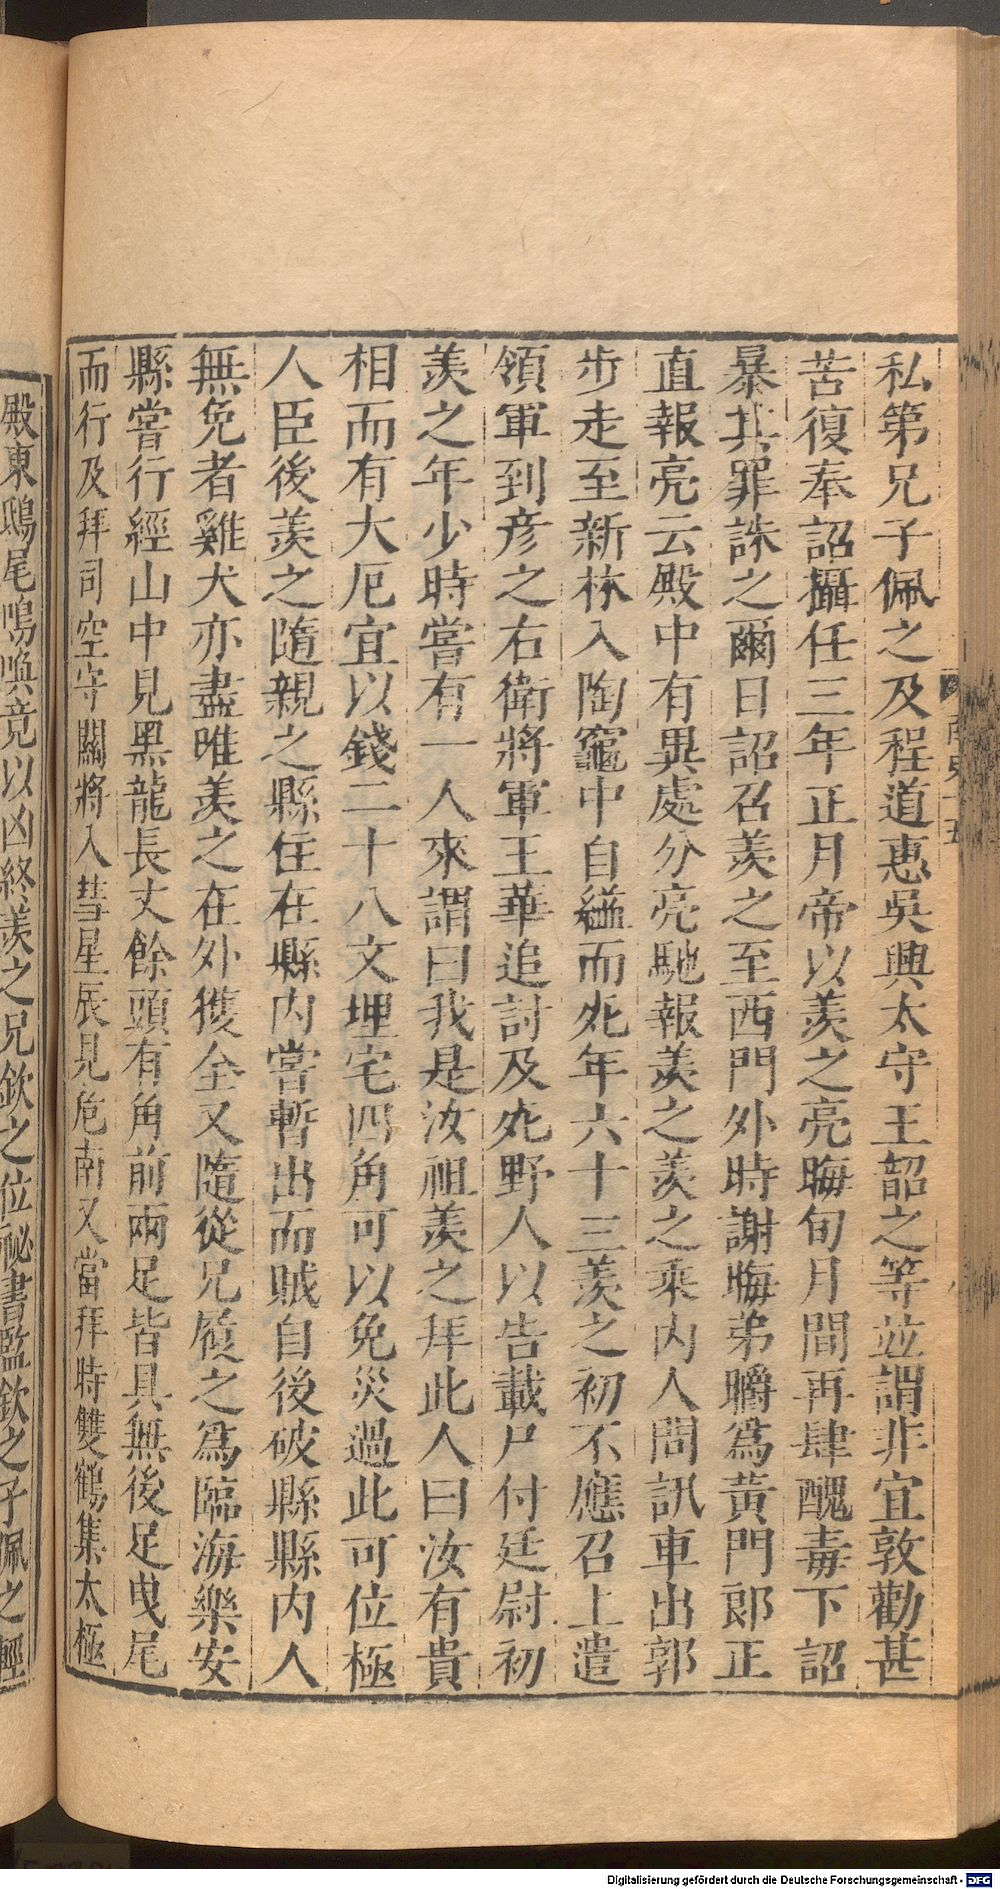 私第兄子佩之及程道惠吳興太守王韶之等並謂非宜敦勸甚
苦復奉詔攝任三年正月帝以羨之亮晦旬月間再肆醜毒下詔
暴其罪誅之爾日詔召羨之至西門外時謝晦弟㬭爲黃門郎正
直報亮云殿中有異處分亮馳報羨之羨之乘內人問訊車出郭
步走至新林入陶竈中自縊而死年六十三羨之初不應召上遣
領軍到彦之右衛將軍王華追討及死野人以告載尸付廷尉初
羨之年少時嘗有一人來謂曰我是汝祖羨之拜此人曰汝有貴
相而有大厄宜以錢二十八文埋宅四角可以免災過此可位極
人臣後羨之隨親之縣住在縣内嘗暫出而賊自後破縣縣内人
無免者雞犬亦盡唯羨之在外獲全又隨從兄履之爲臨海樂安
縣嘗行經山中見黑龍長丈餘頭有角前兩足皆具無後足曳尾
而行及拜司空守關將入彗星辰見危南又當拜時雙鶴集太極
殿東鴟尾鳴喚竟以凶終羨之兄欽之位祕書監欽之子佩之輕
南史十五
Digitalisierung gefördert durch die Deutsche Forschungsgemeinschaft - DFG